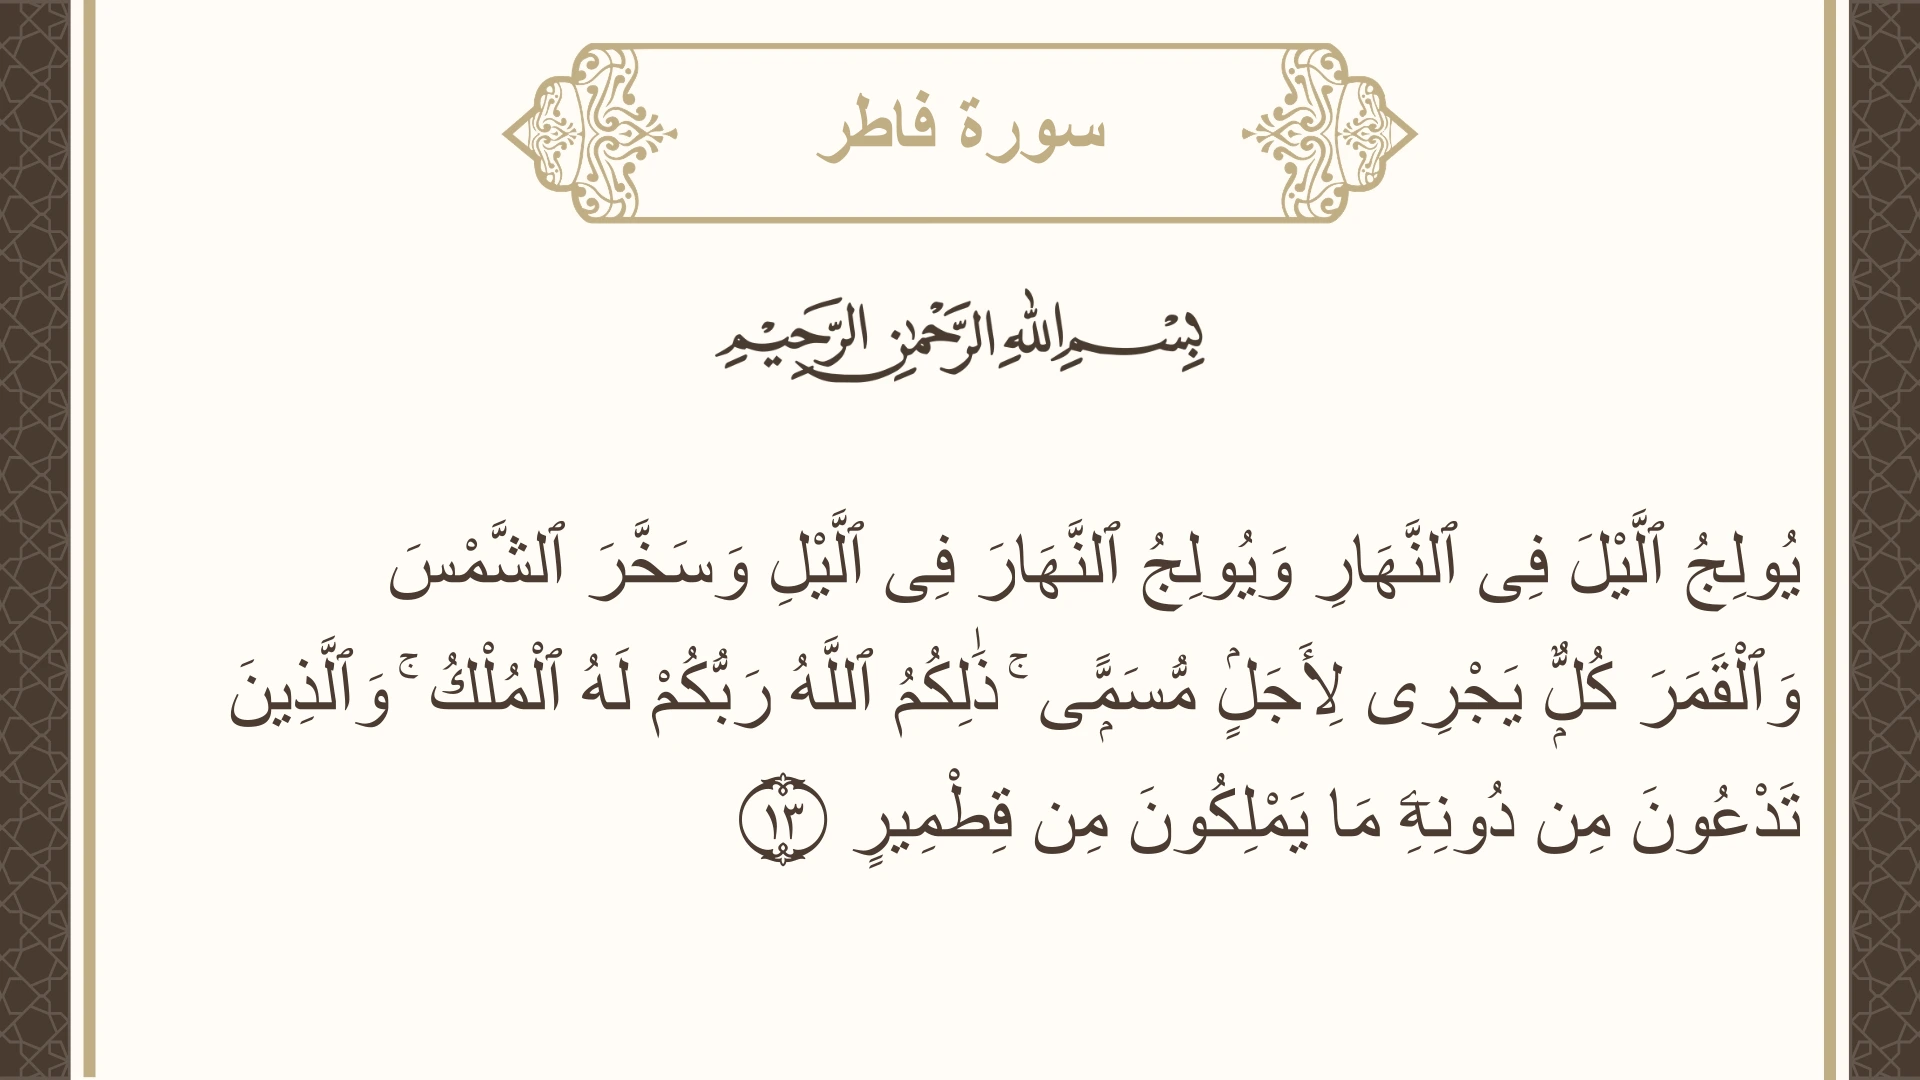 سورة فاطر
بِسْمِ اللهِ الرَّحْمٰنِ الرَّحِيْمِ
يُولِجُ ٱلَّيْلَ فِى ٱلنَّهَارِ وَيُولِجُ ٱلنَّهَارَ فِى ٱلَّيْلِ وَسَخَّرَ ٱلشَّمْسَ
وَٱلْقَمَرَ كُلٌّۭ يَجْرِى لِأَجَلٍۢ مُّسَمًّۭى ۚ ذَٰلِكُمُ ٱللَّهُ رَبُّكُمْ لَهُ ٱلْمُلْكُ ۚ وَٱلَّذِينَ
تَدْعُونَ مِن دُونِهِۦ مَا يَمْلِكُونَ مِن قِطْمِيرٍ ١٣